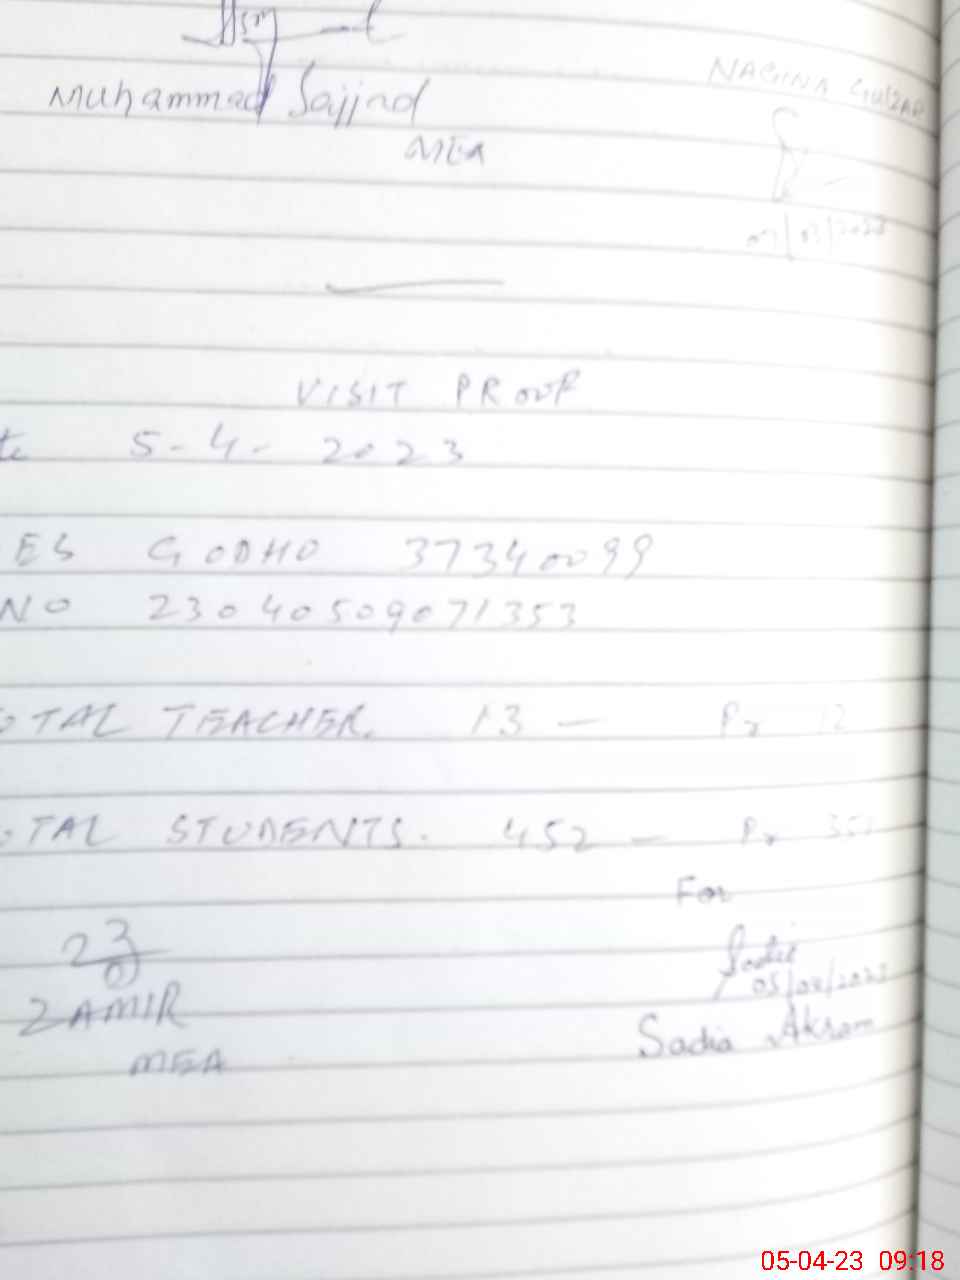 Muhammad Sajjad
MEA
NAGINA GULZAR
VISIT PROOF
te 5-4-2023
ES GODHO 37340099
NO 23040509071353
OTAL TEACHER. 13 — Pr 12
OTAL STUDENTS. 452 — Pr
For
Sadia
05/04/2023
ZAMIR
Sadia Akram
MEA
05-04-23 09:18